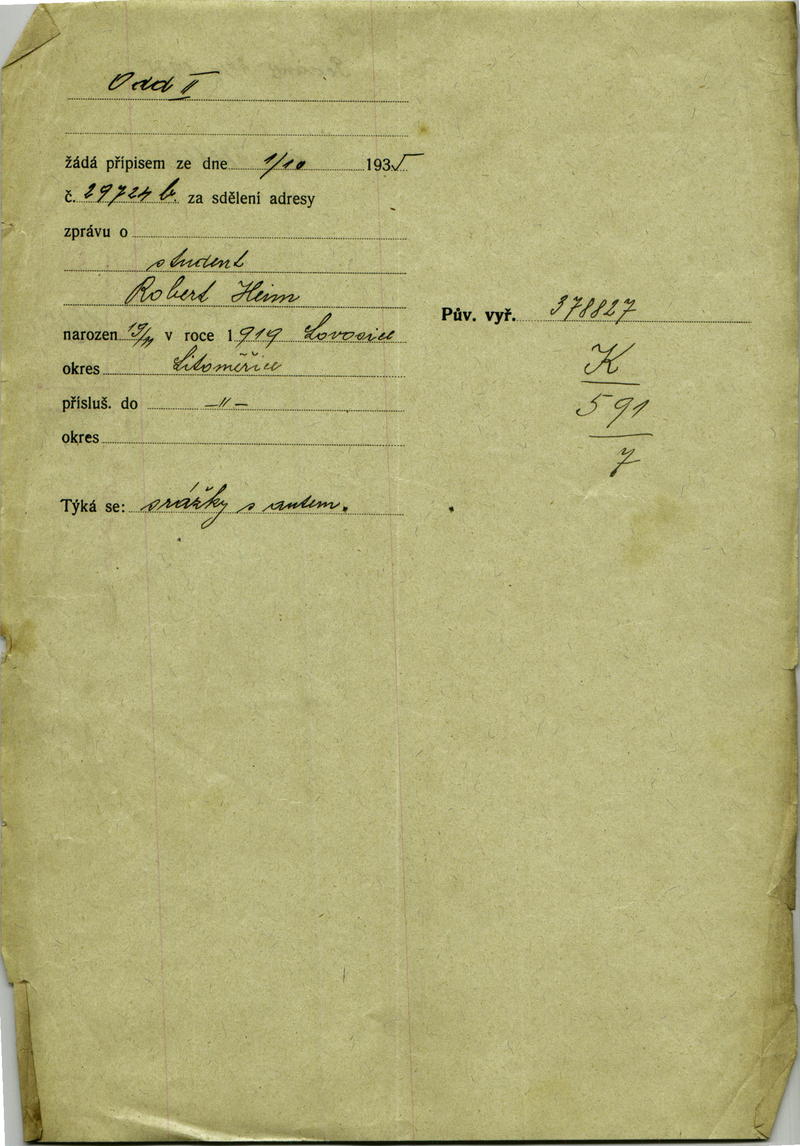 Odd II
žádá přípisem ze dne 1/10 1935
č. 29724 b. za sdělení adresy
zprávu o
student
Robert Heim
narozen v roce 1919 Lovosice
okres Litoměřice
přísluš. do —"—
okres
Týká se: srážky s autem.
Pův. vyř. 378827
K
591
7